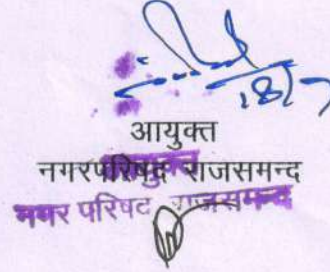 18/7
आयुक्त
नगरपरिषद राजसमन्द
आयुक्त
नगर परिषद राजसमन्द